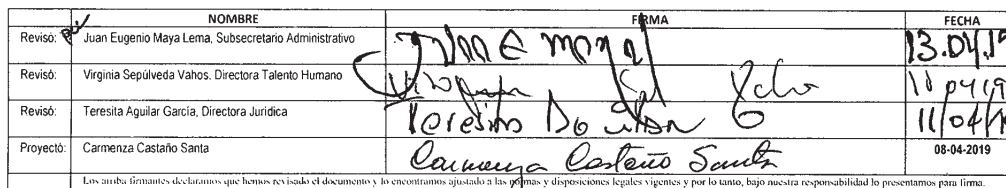 NOMBRE FIRMA FECHA
Revisó: Juan Eugenio Maya Lema, Subsecretario Administrativo 13.04.19
Revisó: Virginia Sepúlveda Vahos, Directora Talento Humano 11 04 19
Revisó: Teresita Aguilar García, Directora Jurídica Teresita 11/04/19
Proyectó: Carmenza Castaño Santa Carmenza Castaño Santa 08-04-2019
Los arriba firmantes declaramos que hemos revisado el documento y lo encontramos ajustado a las normas y disposiciones legales vigentes y por lo tanto, bajo nuestra responsabilidad lo presentamos para firma.